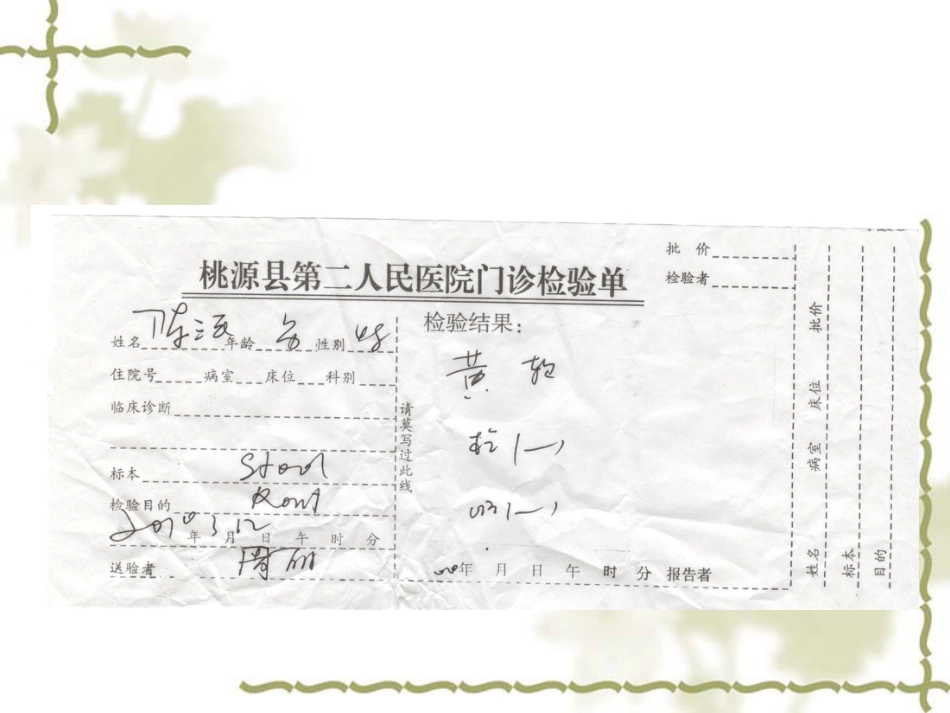 批 价
桃源县第二人民医院门诊检验单
检验者
检验结果：
姓名 陈 年龄 性别
黄 软
住院号 病室 床位 科别
临床诊断
请莫写过此线
(一)
标本 Stool
检验目的 Rout
(一)
2010年3月12日 午 时 分
送验者
年 月 日 午 时 分 报告者
姓名 病室 床位 批价
标本
目的